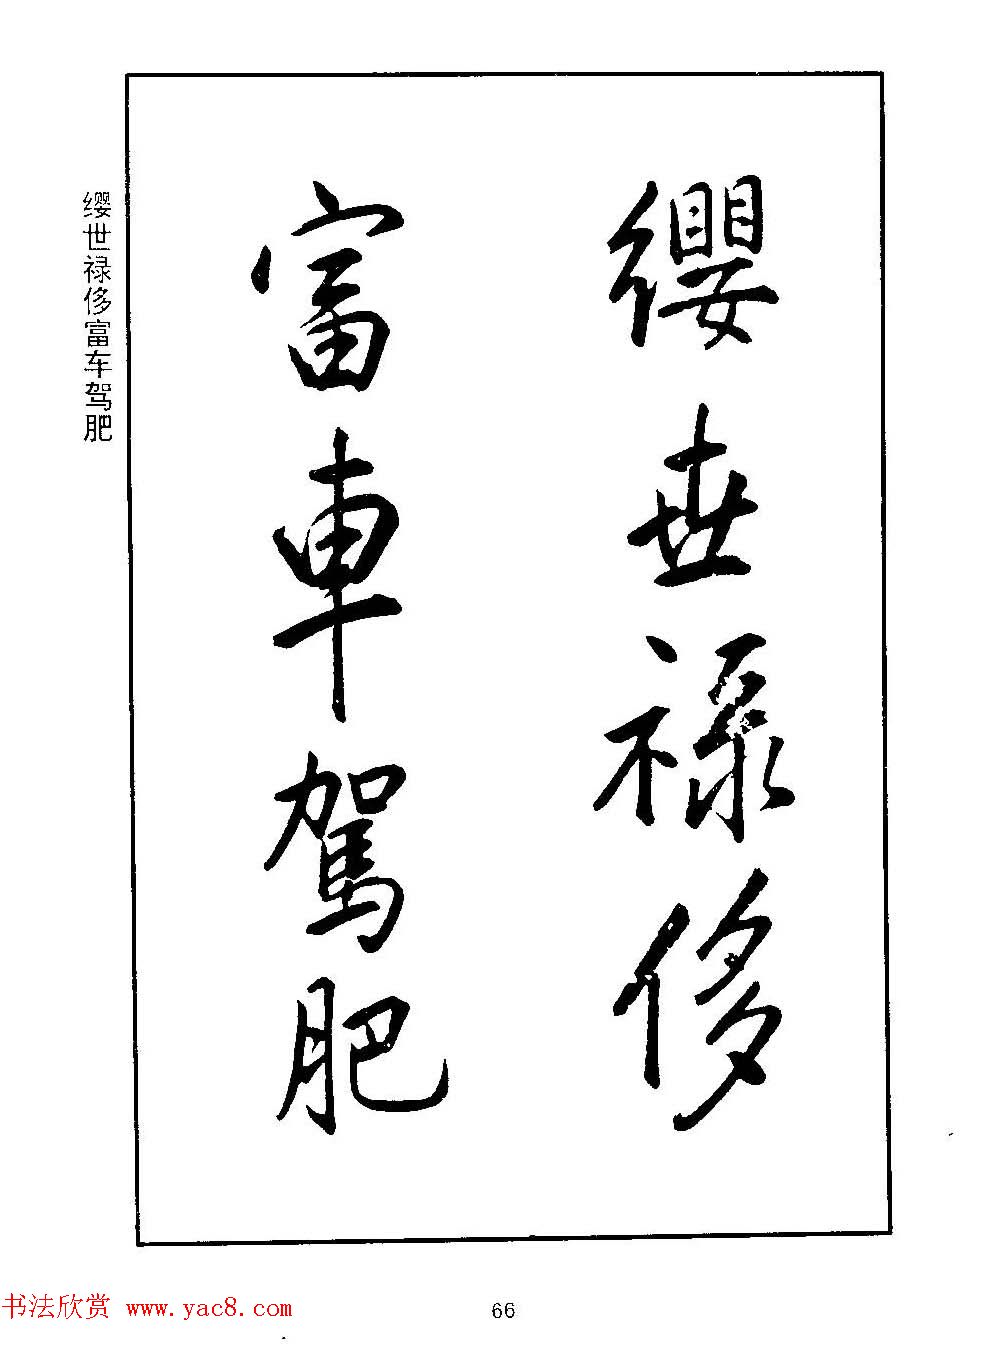 纓世禄侈
富車駕肥
缨世禄侈富车驾肥
书法欣赏 www.yac8.com
66